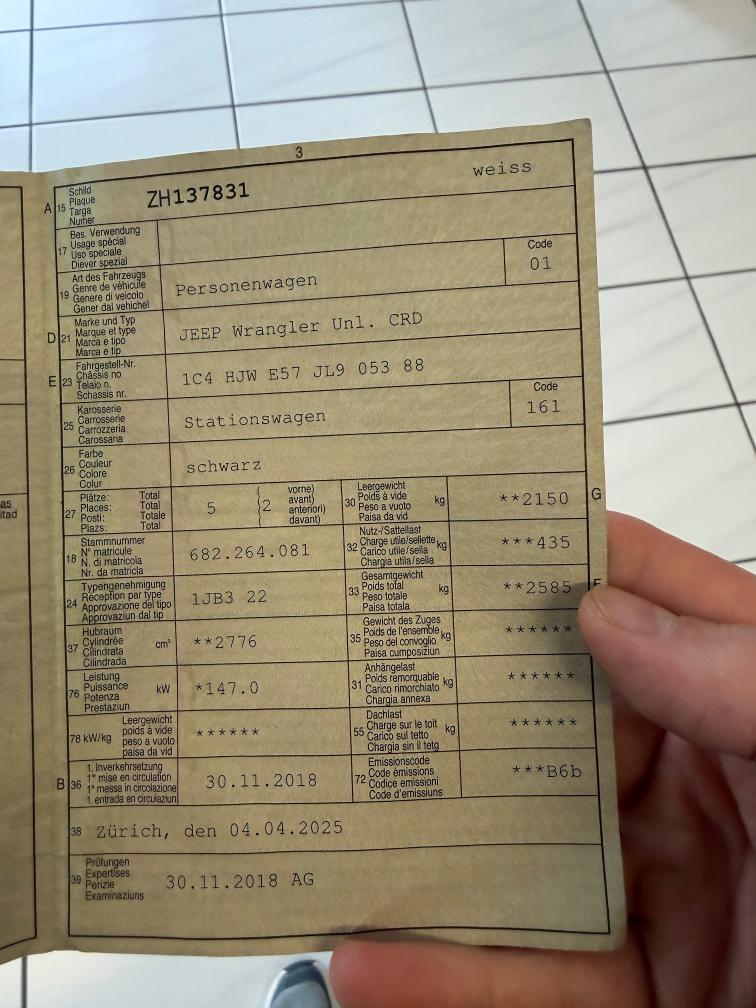 3
A 15 Schild
Plaque
Targa
Numer
ZH137831 weiss
17 Bes. Verwendung
Usage spécial
Uso speciale
Diever spezial
19 Art des Fahrzeugs
Genre de véhicule
Genere di veicolo
Gener dal vehichel
Personenwagen
Code
01
D 21 Marke und Typ
Marque et type
Marca e tipo
Marca e tip
JEEP Wrangler Unl. CRD
E 23 Fahrgestell-Nr.
Châssis no
Telaio n.
Schassis nr.
1C4 HJW E57 JL9 053 88
25 Karosserie
Carrosserie
Carrozzeria
Carossaria
Stationswagen
Code
161
26 Farbe
Couleur
Colore
Colur
schwarz
27 Plätze: Total
Places: Total
Posti: Totale
Plazs: Total
5 (2 vorne)
avant)
anteriori)
davant)
30 Leergewicht
Poids à vide kg
Peso a vuoto
Paisa da vid
**2150 G
18 Stammnummer
N° matricule
N. di matricola
Nr. da matricla
682.264.081
32 Nutz-/Sattellast
Charge utile/sellette kg
Carico utile/sella
Chargia utila/sella
***435
24 Typengenehmigung
Réception par type
Approvazione del tipo
Approvaziun dal tip
1JB3 22
33 Gesamtgewicht
Poids total kg
Peso totale
Paisa totala
**2585
37 Hubraum
Cylindrée cm³
Cilindrata
Cilindrada
**2776
35 Gewicht des Zuges
Poids de l'ensemble kg
Peso del convoglio
Paisa cumposiziun
******
76 Leistung
Puissance kW
Potenza
Prestaziun
*147.0
31 Anhängelast
Poids remorquable kg
Carico rimorchiato
Chargia annexa
******
78 kW/kg Leergewicht
poids à vide
peso a vuoto
paisa da vid
******
55 Dachlast
Charge sur le toit kg
Carico sul tetto
Chargia sin il tetg
******
B 36 1. Inverkehrsetzung
1re mise en circulation
1a messa in circolazione
1. entrada en circulaziun
30.11.2018
72 Emissionscode
Code émissions
Codice emissioni
Code d'emissiuns
***B6b
38 Zürich, den 04.04.2025
39 Prüfungen
Expertises
Perizie
Examinaziuns
30.11.2018 AG